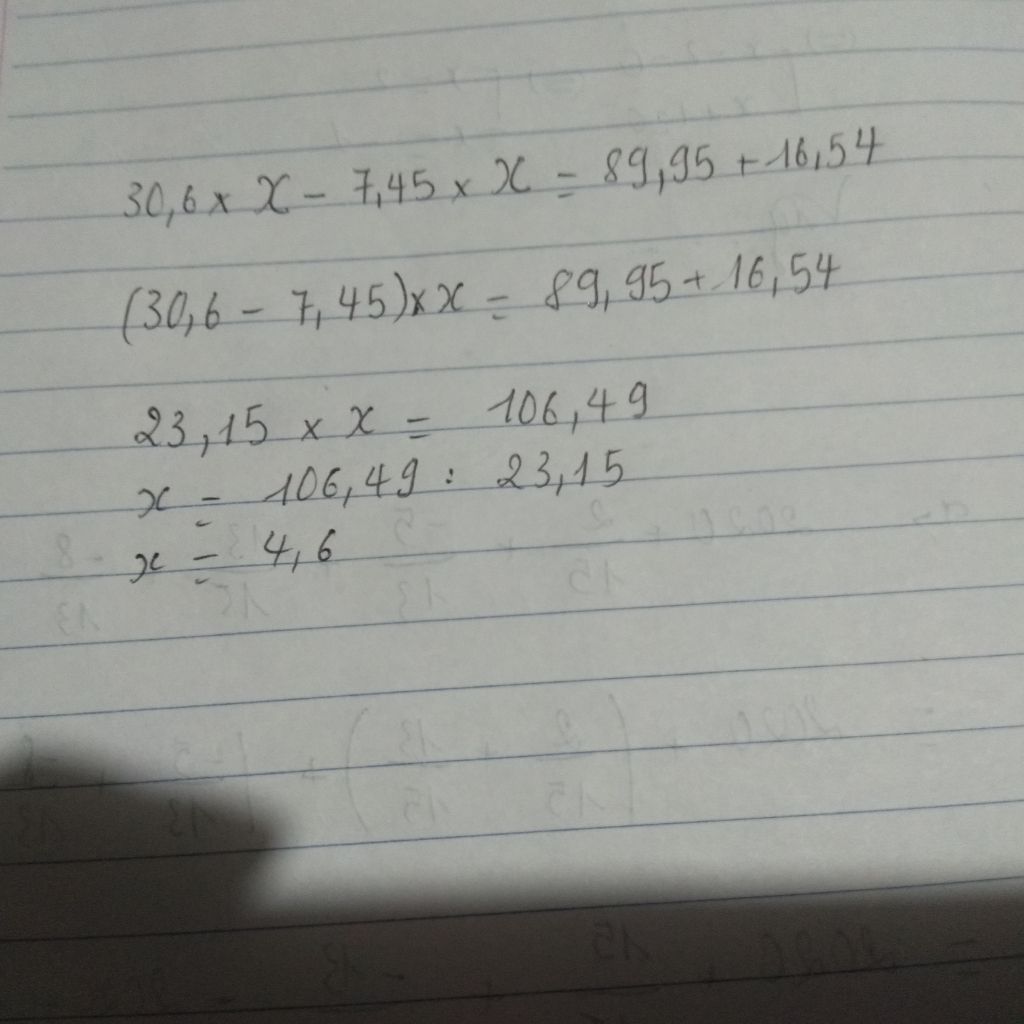 30,6 x x - 7,45 x x = 89,95 + 16,54
(30,6 - 7,45) x x = 89,95 + 16,54
23,15 x x = 106,49
x = 106,49 : 23,15
x = 4,6